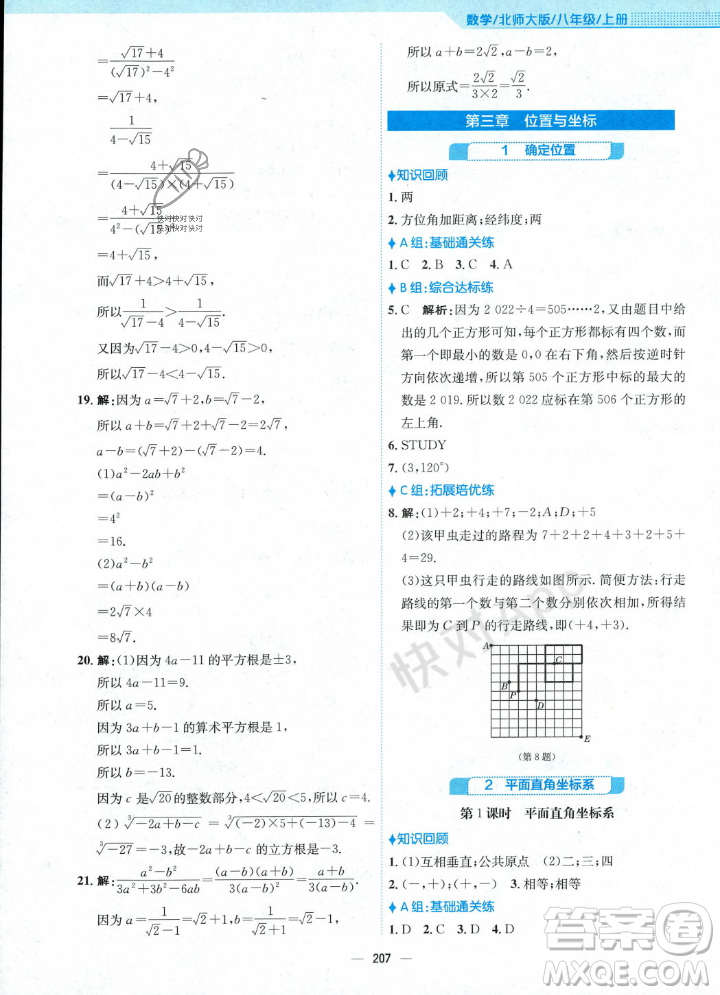 数学/北师大版/八年级/上册
=(√17+4)/((√17)²-4²)
=√17+4,
1/(4-√15)
=(4+√15)/((4-√15)×(4+√15))
=(4+√15)/(4²-(√15)²)
=4+√15,
而√17+4>4+√15,
所以1/(√17-4)>1/(4-√15).
又因为√17-4>0,4-√15>0,
所以√17-4<4-√15.
19. 解:因为a=√7+2,b=√7-2,
所以a+b=√7+2+√7-2=2√7,
a-b=(√7+2)-(√7-2)=4.
(1)a²-2ab+b²
=(a-b)²
=4²
=16.
(2)a²-b²
=(a+b)(a-b)
=2√7×4
=8√7.
20. 解:(1)因为4a-11的平方根是±3,
所以4a-11=9.
所以a=5.
因为3a+b-1的算术平方根是1,
所以3a+b-1=1.
所以b=-13.
因为c是√20的整数部分,4<√20<5,
所以c=4.
(2)∛(-2a+b-c)=∛((-2)×5+(-13)-4)=
∛(-27)=-3,故-2a+b-c的立方根是-3.
21. 解:(a²-b²)/(3a²+3b²-6ab)=((a-b)(a+b))/(3(a-b)(a-b))=(a+b)/(3(a-b)),
因为a=1/(√2-1)=√2+1,b=1/(√2+1)=√2-1,
所以a+b=2√2,a-b=2,
所以原式=(2√2)/(3×2)=√2/3.
第三章 位置与坐标
1 确定位置
知识回顾
1. 两
2. 方位角加距离;经纬度;两
A组:基础通关练
1. C 2. B 3. C 4. A
B组:综合达标练
5. C 解析:因为2 022÷4=505……2,又由题目中给
出的几个正方形可知,每个正方形都有四个数,而
第一个即最小的数是0,0在右下角,然后按逆时针
方向依次递增,所以第505个正方形中标的最大的
数是2 019.所以数2 022应标在第506个正方形的
左上角.
6. STUDY
7. (3,120°)
C组:拓展培优练
8. 解:(1)+2;+4;-2;A;D;+5
(2)该甲虫走过的路程为7+2+2+4+5+5+4
=29.
(3)这只甲虫行走的路线如图所示.简便方法:行走
路线的第一个数与第二个数分别依次相加,得出
结果即为C到P的行走路线,即(+4,+3).
A
C
B
P
D
E
(第8题)
2 平面直角坐标系
第1课时 平面直角坐标系
知识回顾
1. (1)互相垂直;公共原点 (2)二;三;四
2. (-,+);(+,-) 3. 相等;相等
A组:基础通关练
1. D 2. C 3. D 4. B 5. D 6. D
207
快对快对快对
快对快对快对
快对App
答案圈
MXQE.COM